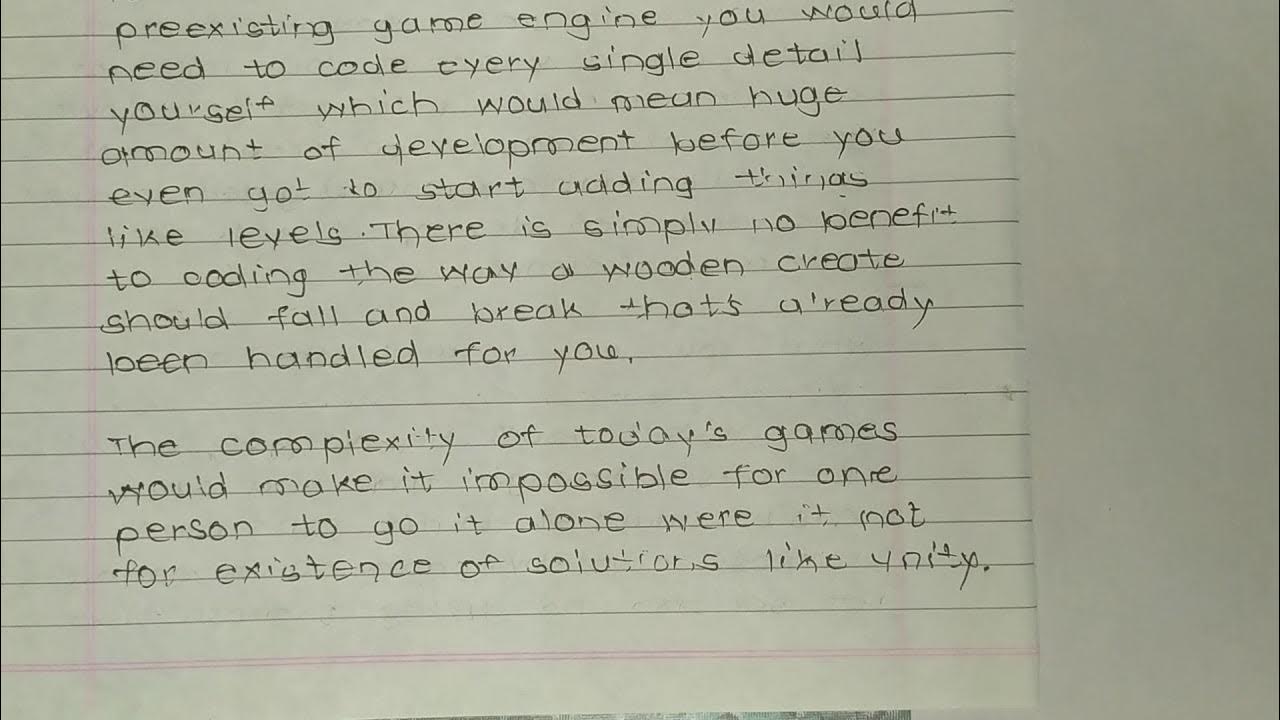 preexisting game engine you would
need to code every single detail
yourself which would mean huge
amount of development before you
even got to start adding things
like levels. There is simply no benefit
to coding the way a wooden create
should fall and break thats already
been handled for you.
The complexity of today's games
would make it impossible for one
person to go it alone were it not
for existence of solutions like unity.